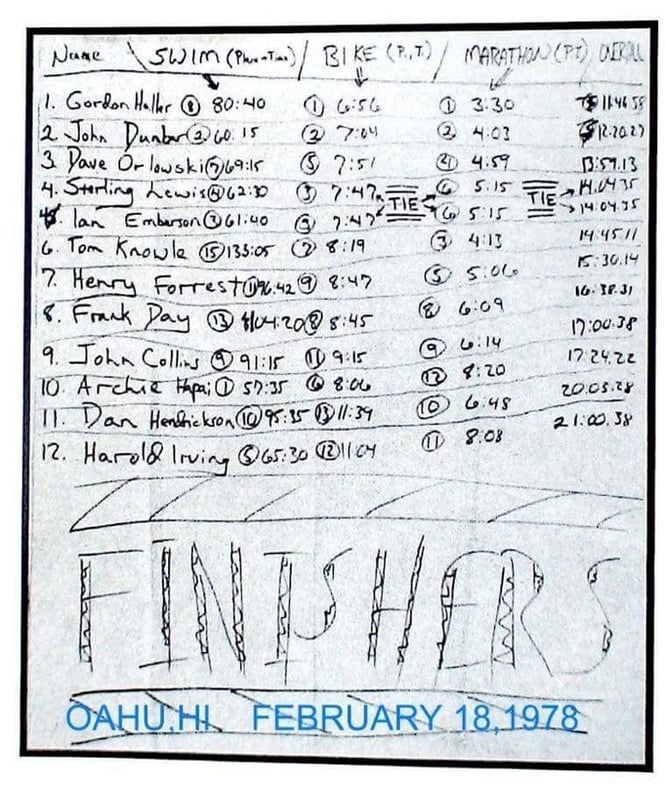 Name \ SWIM (Place-Time) / BIKE (P., T.) / MARATHON (P.T) / OVERALL
1. Gordon Haller ⑧ 80:40 ① 6:56 ① 3:30 11:46.58
2. John Dunbar ② 60.15 ② 7:04 ② 4:03 12.20.27
3. Dave Orlowski ⑦ 69:15 ⑤ 7:51 ④ 4:59 13:59.13
4. Sterling Lewis ④ 62:30 ③ 7:47 TIE ⑥ 5:15 TIE 14.04.35
Ian Emberson ③ 61:40 ③ 7:47 ⑥ 5:15 14:04.35
6. Tom Knowle ⑮ 135:05 ⑦ 8:19 ③ 4:13 14:45.11
7. Henry Forrest ⑪ 96.42 ⑨ 8:47 ⑤ 5:06 15:30.14
8. Frank Day ⑬ 104:20 ⑧ 8:45 ⑧ 6:09 16:38.31
9. John Collins ⑨ 91:15 ⑪ 9:15 ⑨ 6:14 17:00.38
10. Archie Hapai ① 57:35 ⑥ 8:06 ⑫ 8:20 17:24.22
11. Dan Hendrickson ⑩ 95:35 ⑬ 11:39 ⑩ 6:48 20.03.28
12. Harold Irving ⑤ 65:30 ⑫ 11:04 ⑪ 8:08 21:00.38
FINISHERS
OAHU,HI FEBRUARY 18,1978